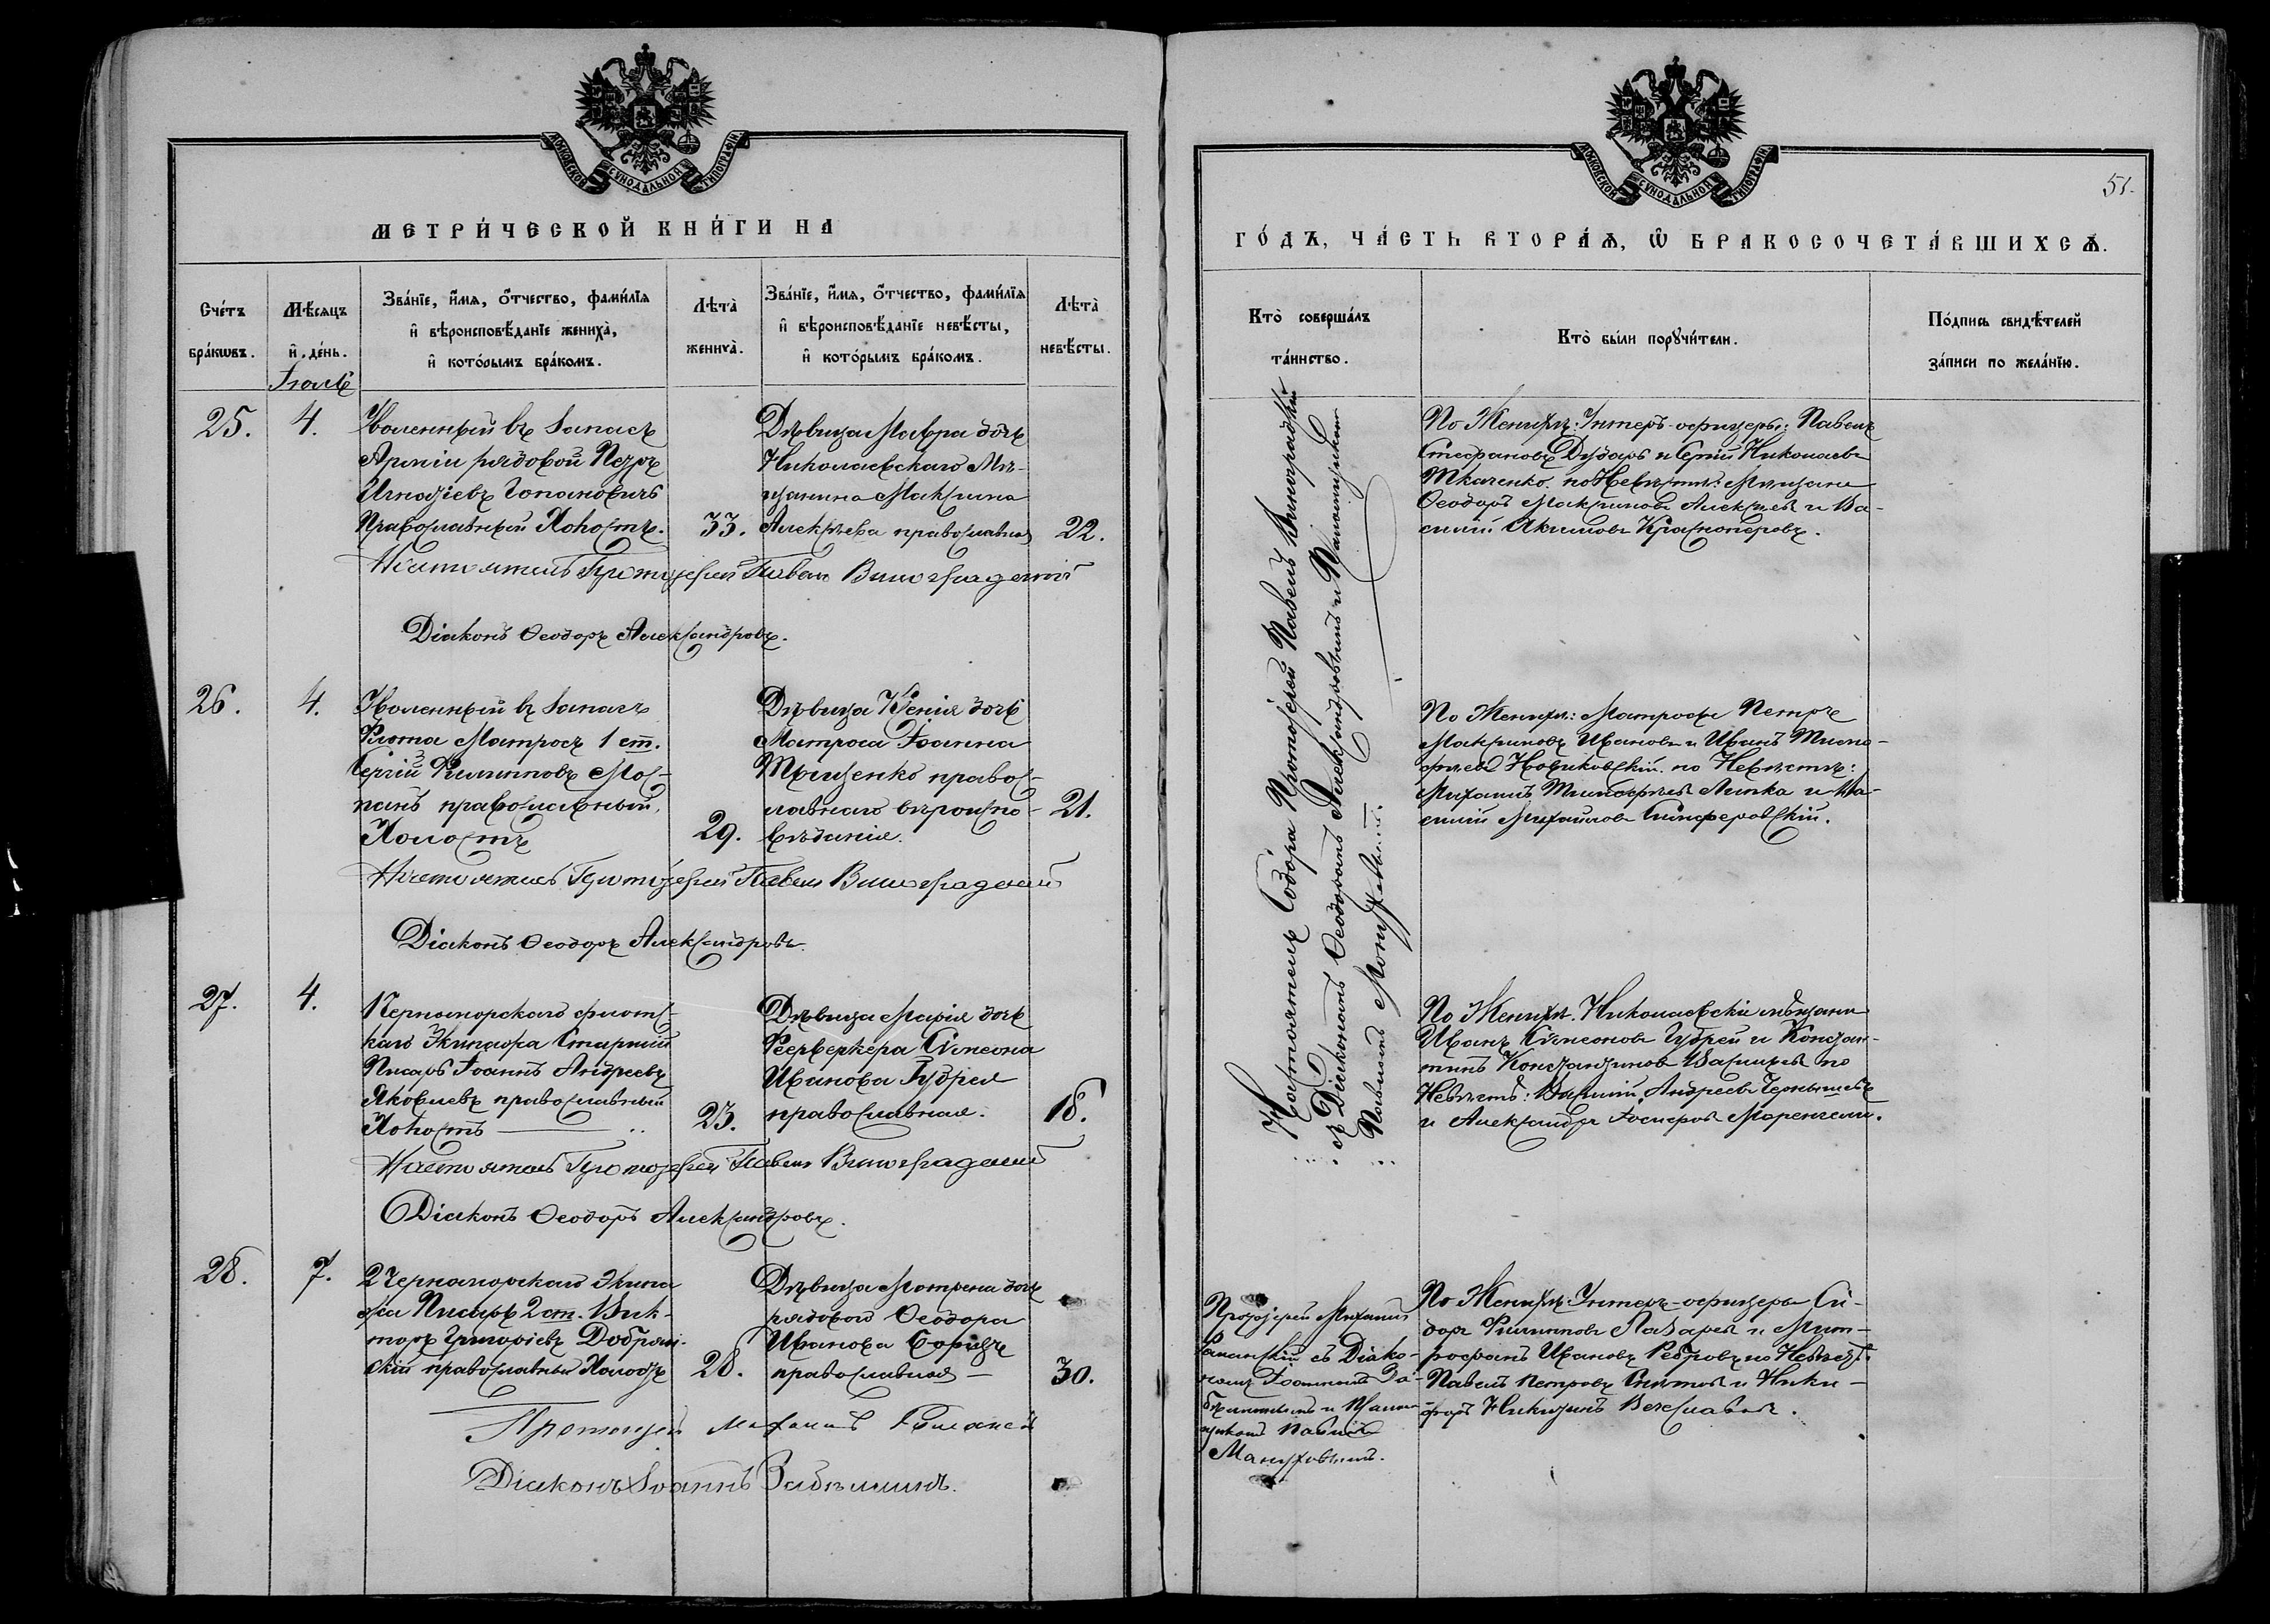 МОСКОВСКОЙ СѴНОДАЛЬНОЙ ТИПОГРАФІИ
МЕТРИ́ЧЕСКОЙ КНИ́ГИ НА
Сче́тъ бра́кѡвъ.
Мѣ́сяцъ и҆ де́нь.
Зва́нїе, и҆́мя, ѻ҆́тчество, фами́лїя и҆ вѣроисповѣ́данїе жениха̀, и҆ кото́рымъ бра́комъ.
Лѣта̀ жениха̀.
Зва́нїе, и҆́мя, ѻ҆́тчество, фами́лїя и҆ вѣроисповѣ́данїе невѣ́сты, и҆ кото́рымъ бра́комъ.
Лѣта̀ невѣ́сты.
Іюль
25.
4.
Уволенный въ запасъ
Арміи рядовой Петръ
Игнатіевъ
Православный Холостъ.
33.
Дѣвица Мавра дочь
Николаевскаго Мѣ-
щанина Максима
Алексѣева православная
22.
Настоятель Протоіерей Павелъ Виноградскій
Діаконъ Ѳеодоръ Александровъ.
26.
4.
Уволенный въ запасъ
Флота Матросъ 1 ст.
Сергій Филипповъ Мос-
панъ православный,
Холостъ
29.
Дѣвица Ксенія дочь
Матроса Іоанна
Тыщенко право-
славнаго вѣроиспо-
вѣданія.
21.
Настоятель Протоіерей Павелъ Виноградскій
Діаконъ Ѳеодоръ Александровъ.
27.
4.
1 Черноморскаго флотс-
каго Экипажа Старшій
Писарь Іоаннъ Андреевъ
Яковлевъ православный
Холостъ
23.
Дѣвица Марія дочь
Феерверкера Сѵмеона
Иванова Губрея
православная.
18.
Настоятель Протоіерей Павелъ Виноградскій
Діаконъ Ѳеодоръ Александровъ.
28.
7.
2 Черноморскаго Экипа
жа Писарь 2 ст. Вик-
торъ Григоріевъ Добрян-
скій православный Холостъ
28.
Дѣвица Матрона дочь
рядового Ѳеодора
Иванова
православная
30.
Протоіерей Михаилъ
Діаконъ Іоаннъ
МОСКОВСКОЙ СѴНОДАЛЬНОЙ ТИПОГРАФІИ
51.
ГО́ДЪ, ЧА́СТЬ ВТОРА́Ѧ, Ѡ҆ БРАКОСОЧЕТА́ВШИХСѦ.
Кто̀ соверша́лъ та́инство.
Кто̀ бы́ли порꙋчи́тели.
По́дпись свидѣ́телей за́писи по жела́нїю.
Настоятель Собора Протоіерей Павелъ Виноградскій
съ Діакономъ Ѳеодоромъ Александровымъ и Псаломщикомъ
Павломъ
По Женихѣ: Унтеръ-офицеры: Павелъ
Стефановъ Дударь и Сергій Николаевъ
Ткаченко. по Невѣстѣ: Мѣщане
Ѳеодоръ Максимовъ Алексѣевъ и Ва-
силій Акимовъ Красноперовъ.
По Женихѣ: Матросы Петръ
Максимовъ Ивановъ и Иванъ Тимо-
фѣевъ Новиковскій. по Невѣстѣ:
Михаилъ Тимофѣевъ Липка и Ва-
силій Михайловъ Симферовскій.
По Женихѣ. Николаевскіе мѣщане
Иванъ Сѵмеоновъ Губрей и Констан-
тинъ Константиновъ Васильевъ по
Невѣстѣ: Василій Андреевъ Чернышевъ
и Александръ Іосифовъ
Протоіерей Михаилъ
съ Діако-
номъ Іоанномъ За-
и Псалом-
щикомъ Павломъ
По Женихѣ: Унтеръ-офицеры Си-
доръ Филипповъ Лазаревъ и Мит-
рофанъ Ивановъ Ребровъ по Невѣстѣ
Павелъ Петровъ и Ники-
форъ Никитинъ